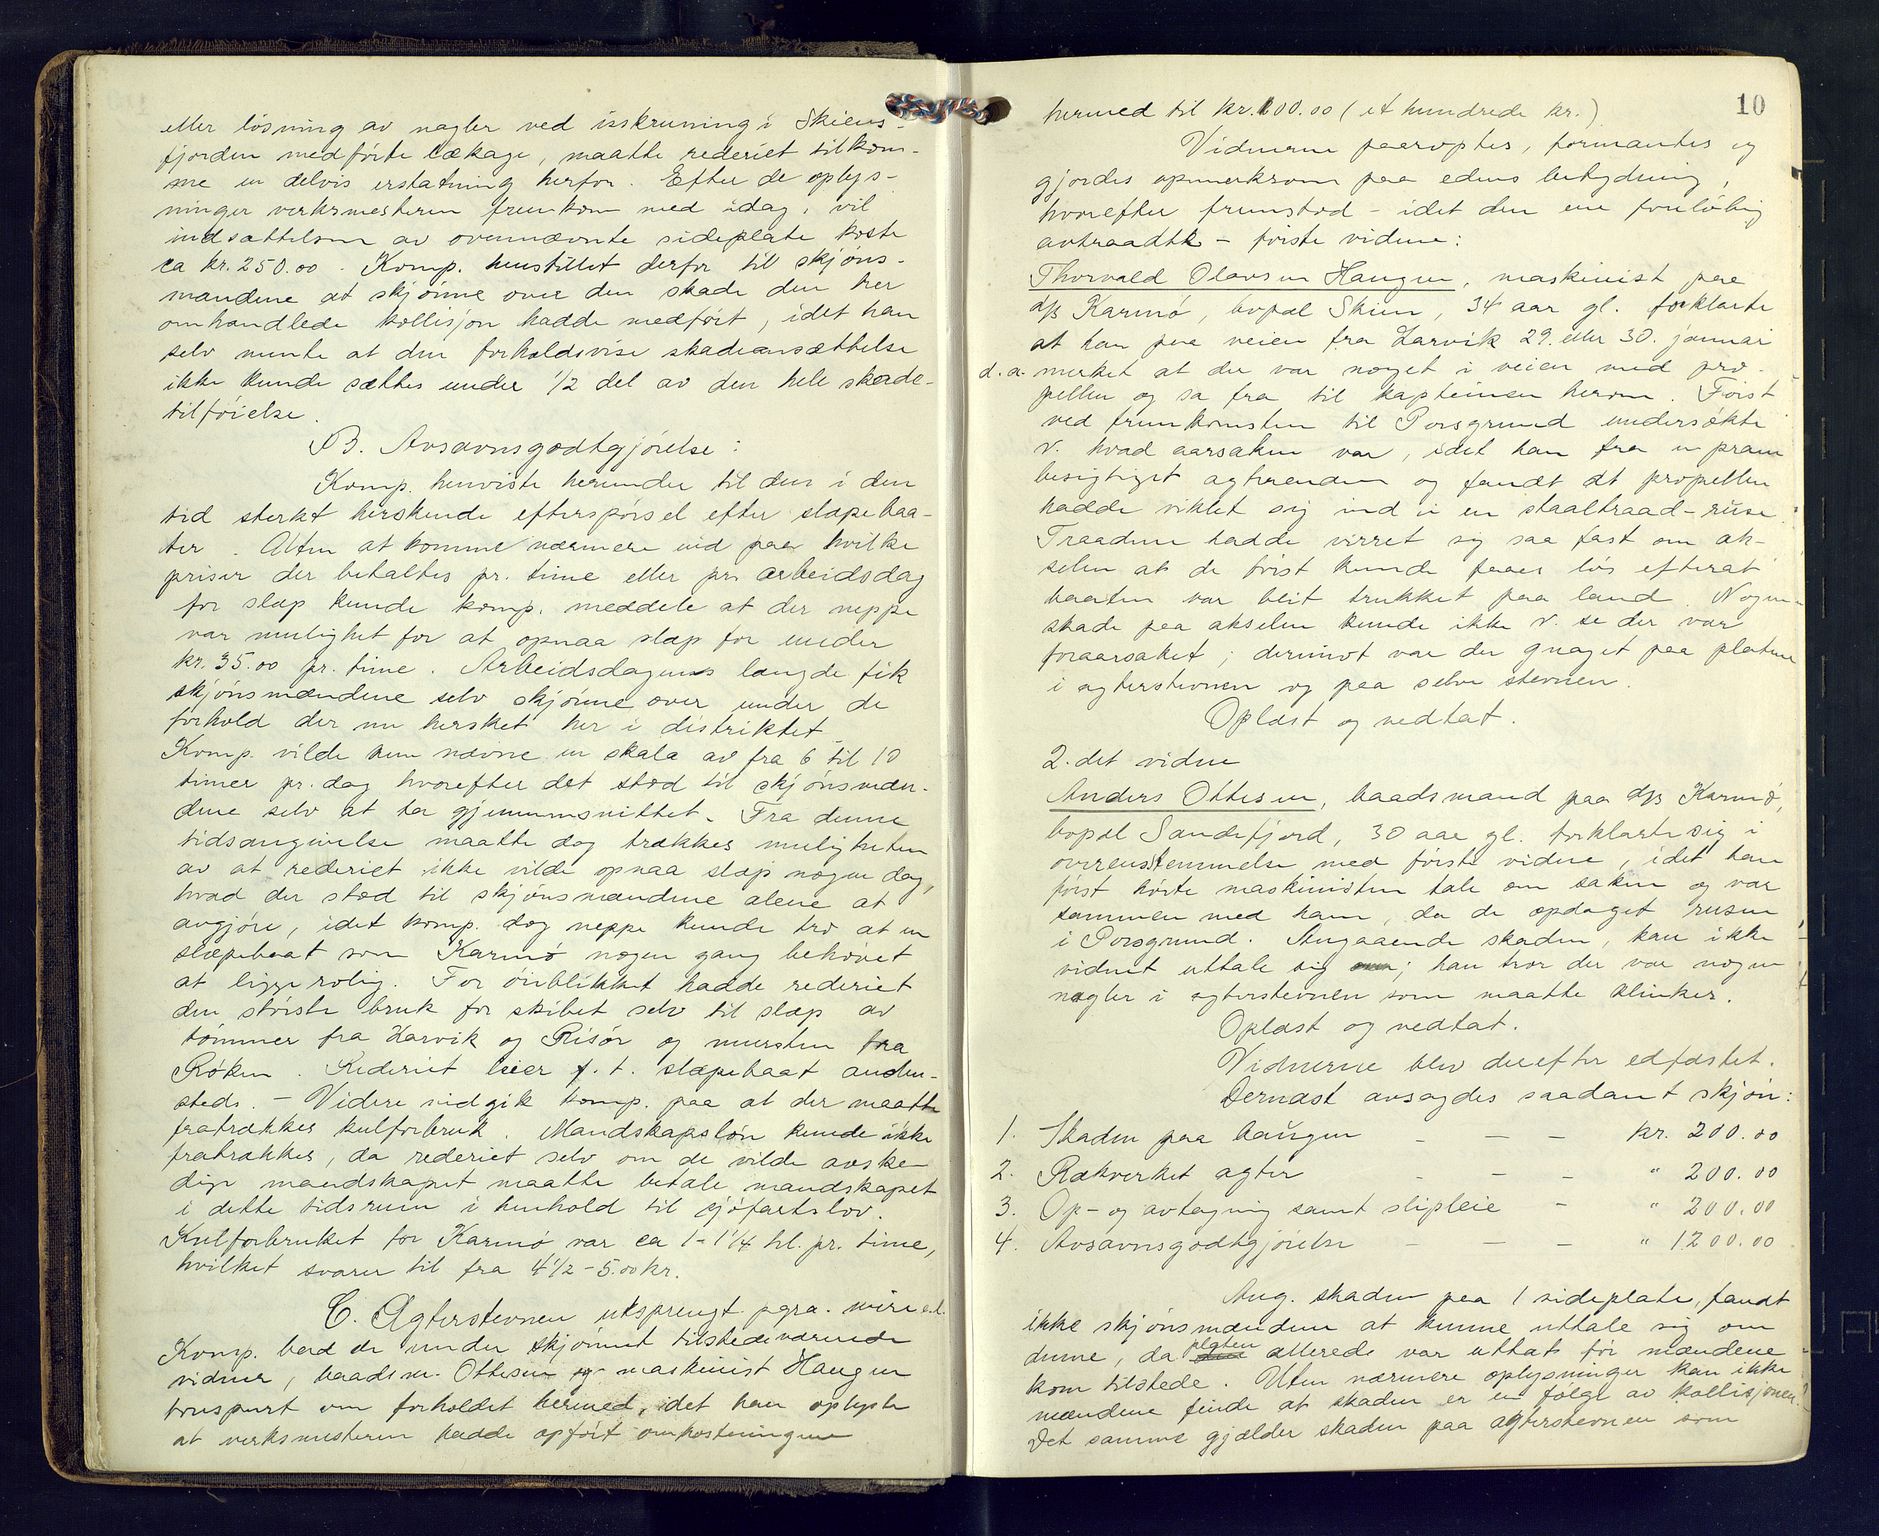 eller løsning av nagler ved isskruning i Skiens-
fjorden medførte lækage, maatte rederiet tilkom-
me en delvis erstatning herfor. Efter de oplys-
ninger verksmesteren fremkom med idag, vil
indsættelsen av ovennævnte sideplate koste
ca kr. 250.00. Komp. henstillet derfor til skjøns-
mændene at skjønne over den skade den her
omhandlede kollisjon hadde medført, idet han
selv mente at den forholdsvise skadeansættelse
ikke kunde sættes under 1/2 del av den hele skade-
tilføielse.
B. Avsavnsgodtgjørelse:
Komp. henviste herunder til den i den
tid sterkt herskende efterspørsel efter slæpebaa-
ter. Uten at komme nærmere ind paa hvilke
priser der betaltes pr. time eller pr. arbeidsdag
for slæp kunde komp. meddele at der neppe
var mulighet for at opnaa slæp for under
kr. 35.00 pr. time. Arbeidsdagens længde fik
skjønsmændene selv skjønne over under de
forhold der nu hersket her i distriktet.
Komp. vilde kun nævne en skala av fra 6 til 10
timer pr. dag hvorefter det stod til skjønsmæn-
dene selv at ta gjennemsnittet. Fra denne
tidsangivelse maatte dog trækkes muligheten
av at rederiet ikke vilde opnaa slæp nogen dag,
hvad der stod til skjønsmændene alene at
avgjøre, idet komp. dog neppe kunde tro at en
slæpebaat som Karmø nogen gang behøvet
at ligge rolig. For øieblikket hadde rederiet
den største bruk for skibet selv til slæp av
tømmer fra Larvik og Risør og mursten fra
Røken. Rederiet leier f. t. slæpebaat anden-
steds. – Videre vidgik komp. paa at der maatte
fratrækkes kulforbruk. Mandskapsløn kunde ikke
fratrækkes, da rederiet selv om de vilde avske-
dige mandskapet maatte betale mandskapet
i dette tidsrum i henhold til sjøfartslov.
Kulforbruket for Karmø var ca 1-1 1/4 hl. pr. time,
hvilket svarer til fra 4 1/2 - 5.00 kr.
C. Agterstevnen utsprengt pgra. wire
Komp. bad de under skjønnet tilstedeværende
vidner, baadsm. Ottesen og maskinist Haugen
forespurt om forholdet hermed, idet han oplyste
at verksmesteren hadde opført omkostningene
10
hermed til kr. 100.00 (et hundrede kr.)
Vidnerne paaroptes, formantes og
gjordes opmerksom paa edens betydning,
hvorefter fremstod – idet den ene foreløbig
avtraadte – første vidne:
Thorvald Olavsen Haugen, maskinist paa
d/s Karmø, bopæl Skien, 34 aar gl. forklarte
at han paa veien fra Larvik 29. eller 30. januar
d. a. merket at der var noget i veien med pro-
pellen og sa fra til kapteinen herom. Først
ved fremkomsten til Porsgrund undersøkte
v. hvad aarsaken var, idet han fra en pram
besigtiget agterenden og fandt at propellen
hadde viklet sig ind i en staaltraad-ruse.
Traadene hadde virret sig saa fast om ak-
selen at de først kunde faaes løs efterat
baaten var blit trukket paa land. Nogen
skade paa akselen kunde ikke v. se der var
foraarsaket; derimot var der gnaget paa platene
i agterstevnen og paa selve stevnen.
Oplæst og vedtat.
2. det vidne
Anders Ottesen, baadsmand paa d/s Karmø,
bopæl Sandefjord, 30 aar gl. forklarte sig i
overensstemmelse med første vidne, idet han
først hørte maskinisten tale om saken og var
sammen med ham, da de opdaget rusen
i Porsgrund. Angaaende skaden, kan ikke
vidnet uttale sig; han tror der var nogen
nagler i agterstevnen som maatte klinkes.
Oplæst og vedtat.
Vidnerne blev derefter edfæstet.
Dernæst avsagdes saadant skjøn:
1. Skaden paa baugen – – – kr. 200.00
2. Rækverket agter – – – " 200.00
3. Op- og avtagning samt slipleie – " 200.00
4. Avsavnsgodtgjørelse – – – " 1200.00
Ang. skaden paa 1 sideplate, fandt
ikke skjønsmændene at kunne uttale sig om
denne, da platen allerede var uttat før mændene
kom tilstede. Uten nærmere oplysninger kan ikke
mændene finde at skaden er en følge av kollisjonen.
Det samme gjælder skaden paa agterstevnen som